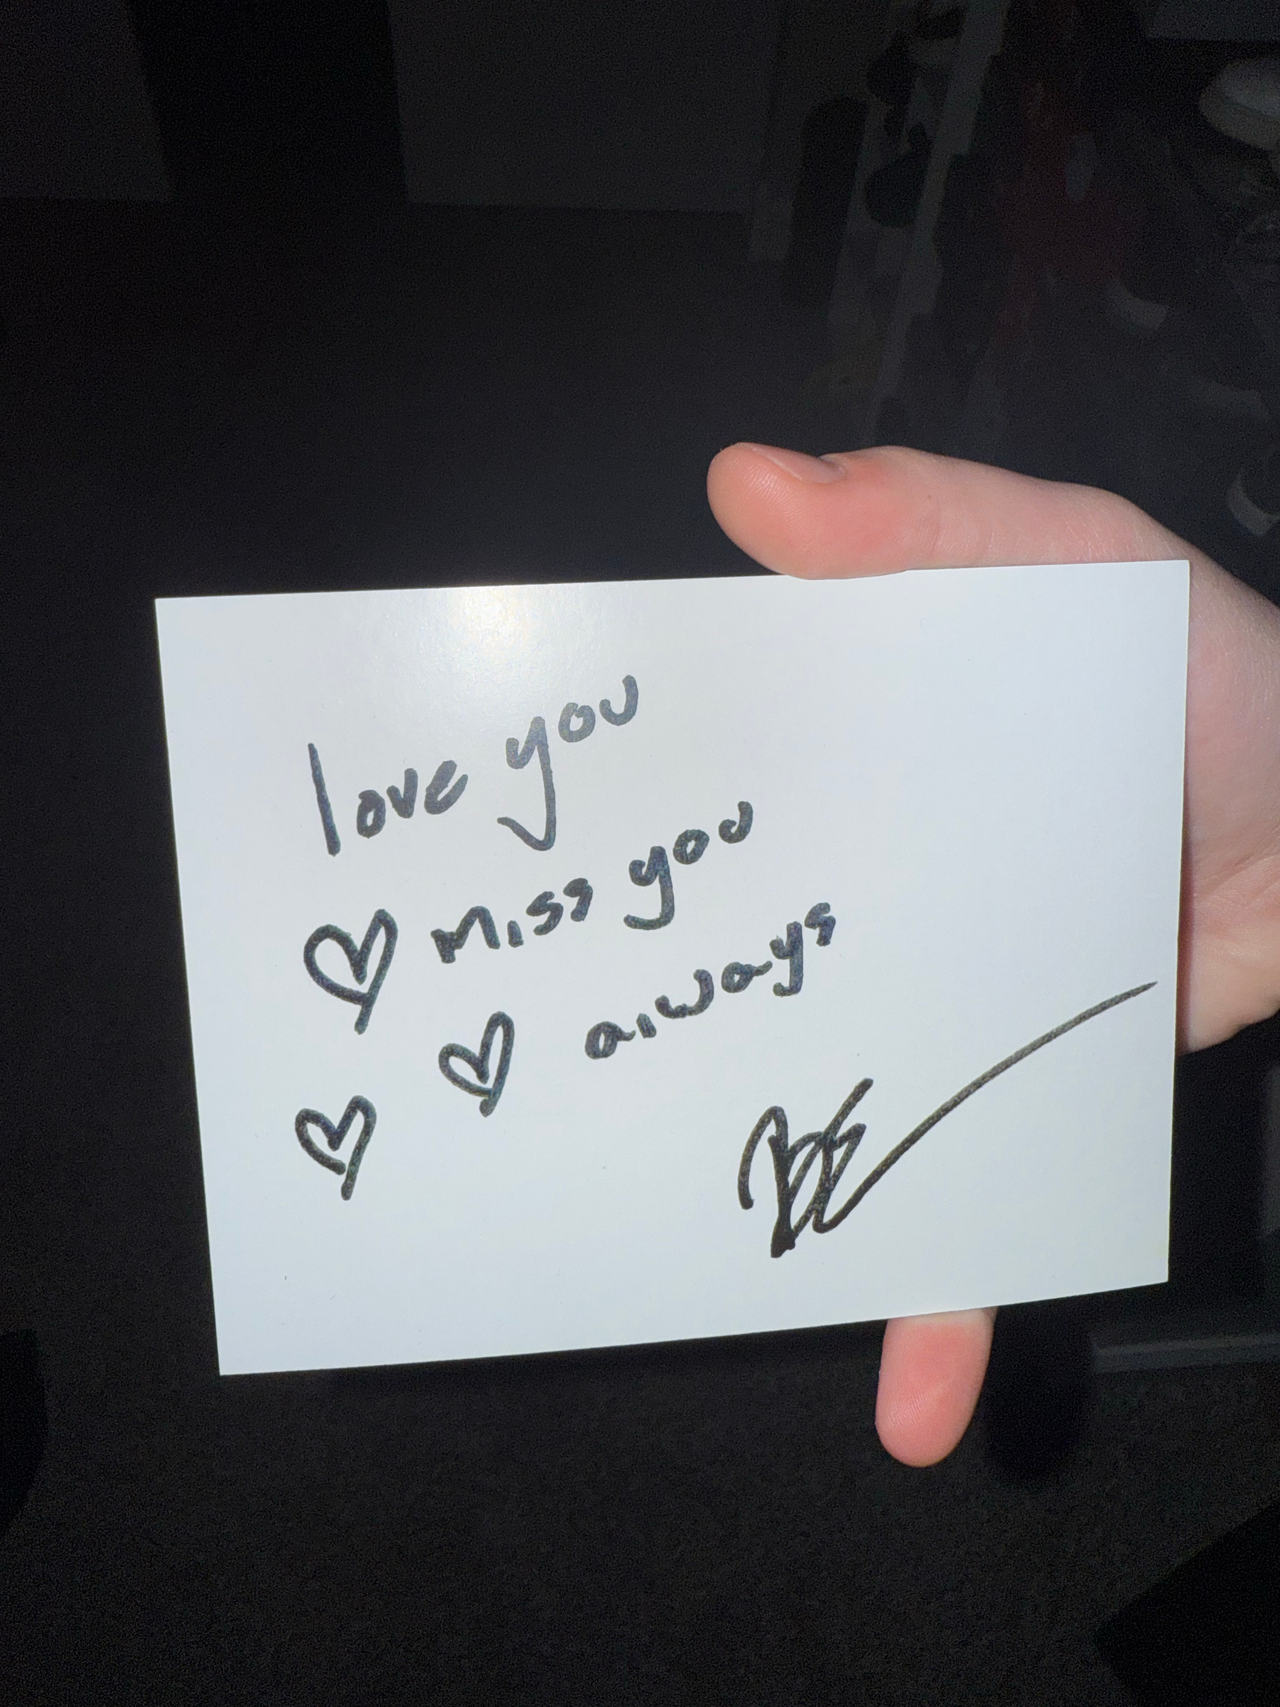 love you
♡ miss you
♡ ♡ always